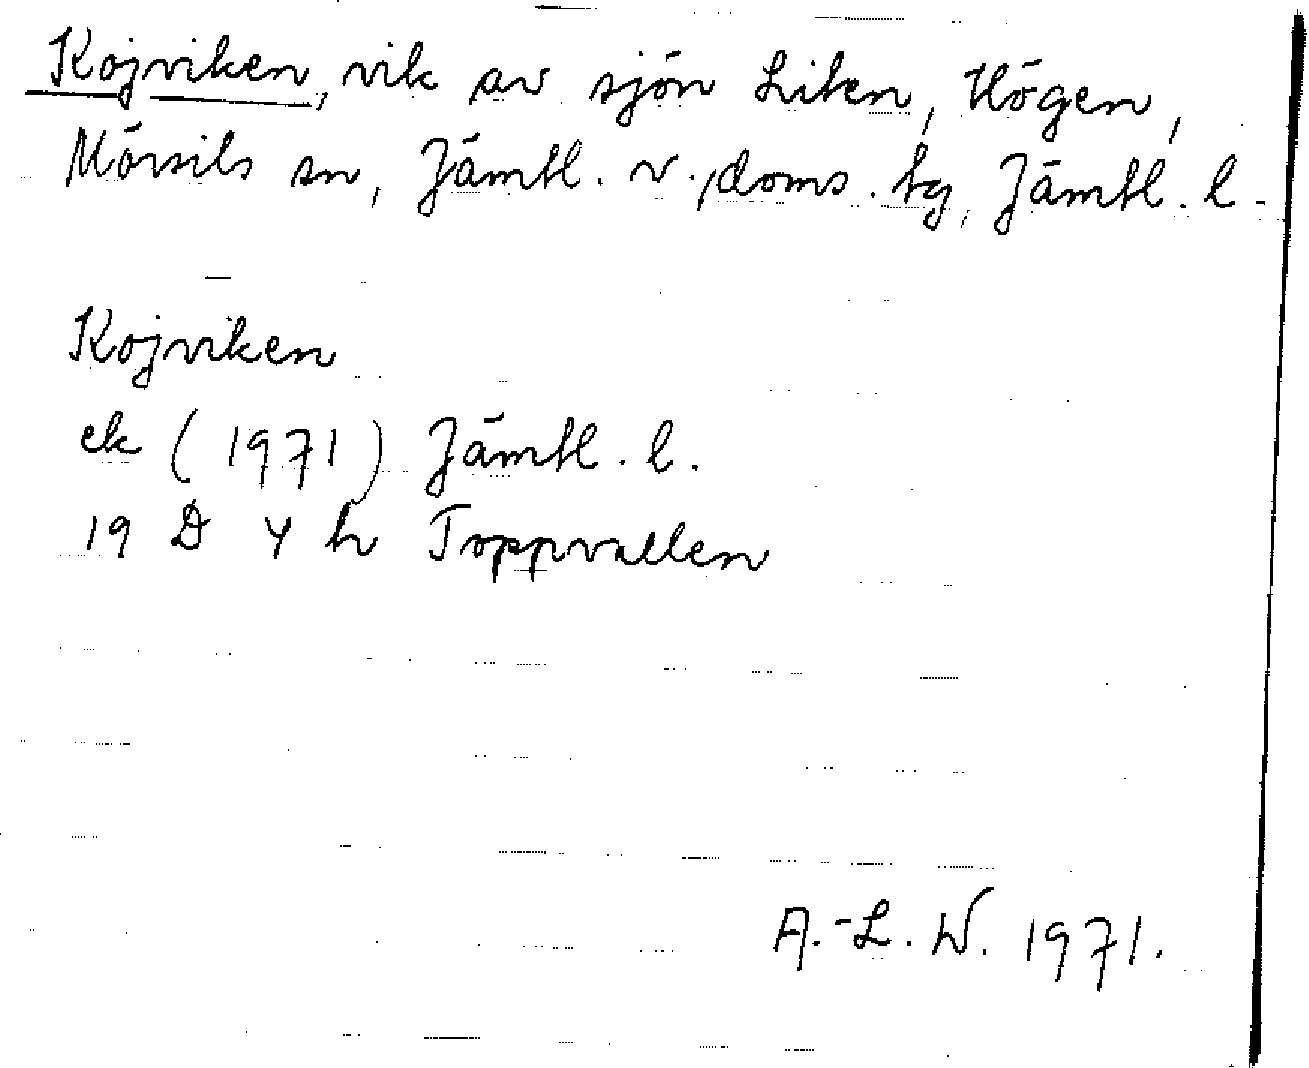 Kojviken, vik av sjön Liten, Högen,
Mörsils sn, Jämtl. v., doms. hg, Jämtl. l.
Kojviken
ek (1971) Jämtl. l.
19 D 4 h Toppvallen
A.-L. W. 1971.